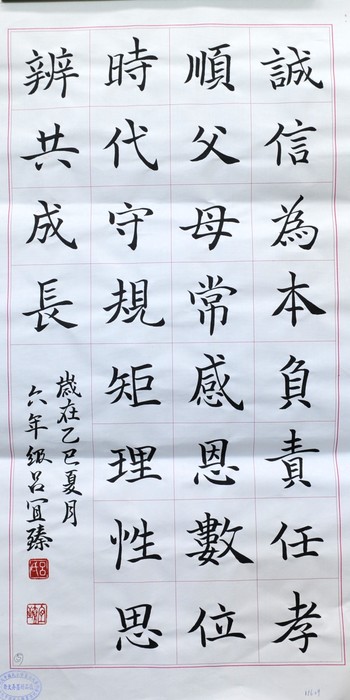 誠信為本負責任孝
順父母常感恩數位
時代守規矩理性思
辨共成長
歲在乙巳夏月
六年級呂宜臻